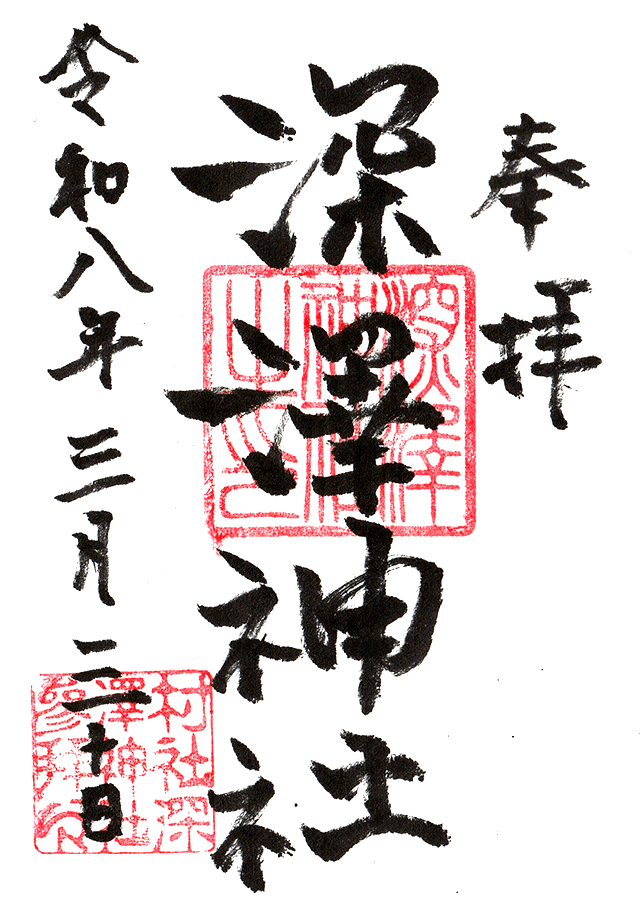 奉拝
深澤神社
令和八年三月二十日
深澤
神社
之印
村社深
澤神社
參拜